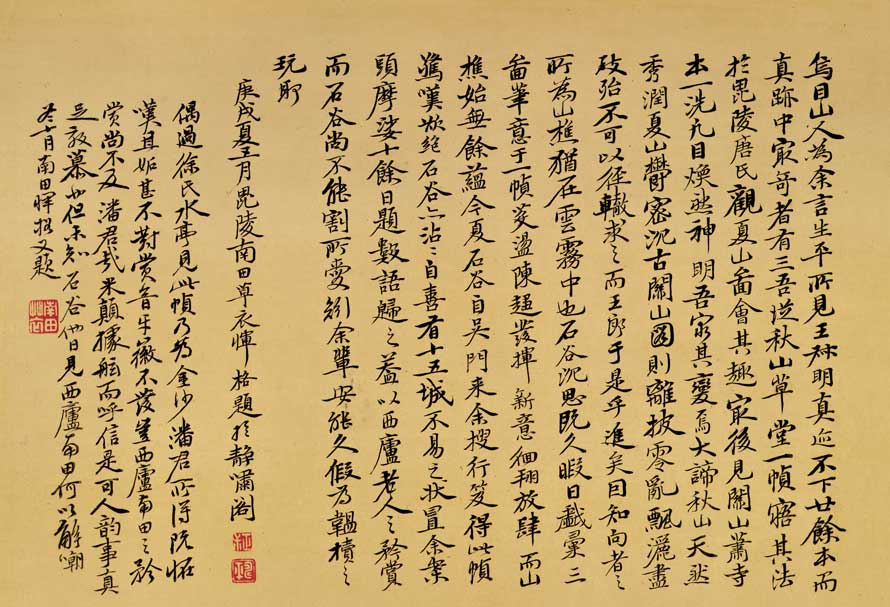 烏目山人為余言生平所見王叔明真迹不下廿餘本而
真跡中最奇者有三吾從秋山草堂一幀寤其法
於毘陵唐氏觀夏山圖會其趣最後見關山蕭寺
本一洗凡目煥然神明吾窮其變焉大諦秋山天然
秀潤夏山鬱密沉古關山圖則離披零亂飄灑盡
致殆不可以徑轍求之而王郎于是乎進矣因知向者之
所為山樵猶在雲霧中也石谷沉思既久暇日戲彙三
啚筆意于一幀芟盪陳趨發揮新意徊翔放肆而山
樵始無餘蘊今夏石谷自吳門来余搜行笈得此幀
驚嘆欲絕石谷亦沾沾自喜有十五城不易之狀置余案
頭摩娑十餘日題數語歸之蓋以西廬老人之矜賞
而石谷尚不能割所愛矧余輩安能久假為韞櫝之
玩耶
庚戌夏五月毘陵南田草衣惲格題於静嘯閣
偶過徐氏水亭見此幀乃為金沙潘君所得既怪
嘆且妬甚不對賞音牙徽不發豈西廬南田之矜
賞尚不及潘君哉米顛據舷而呼信是可人韵事真
足效慕也但未知石谷他日見西廬南田何以解嘲
冬十月南田惲格又題